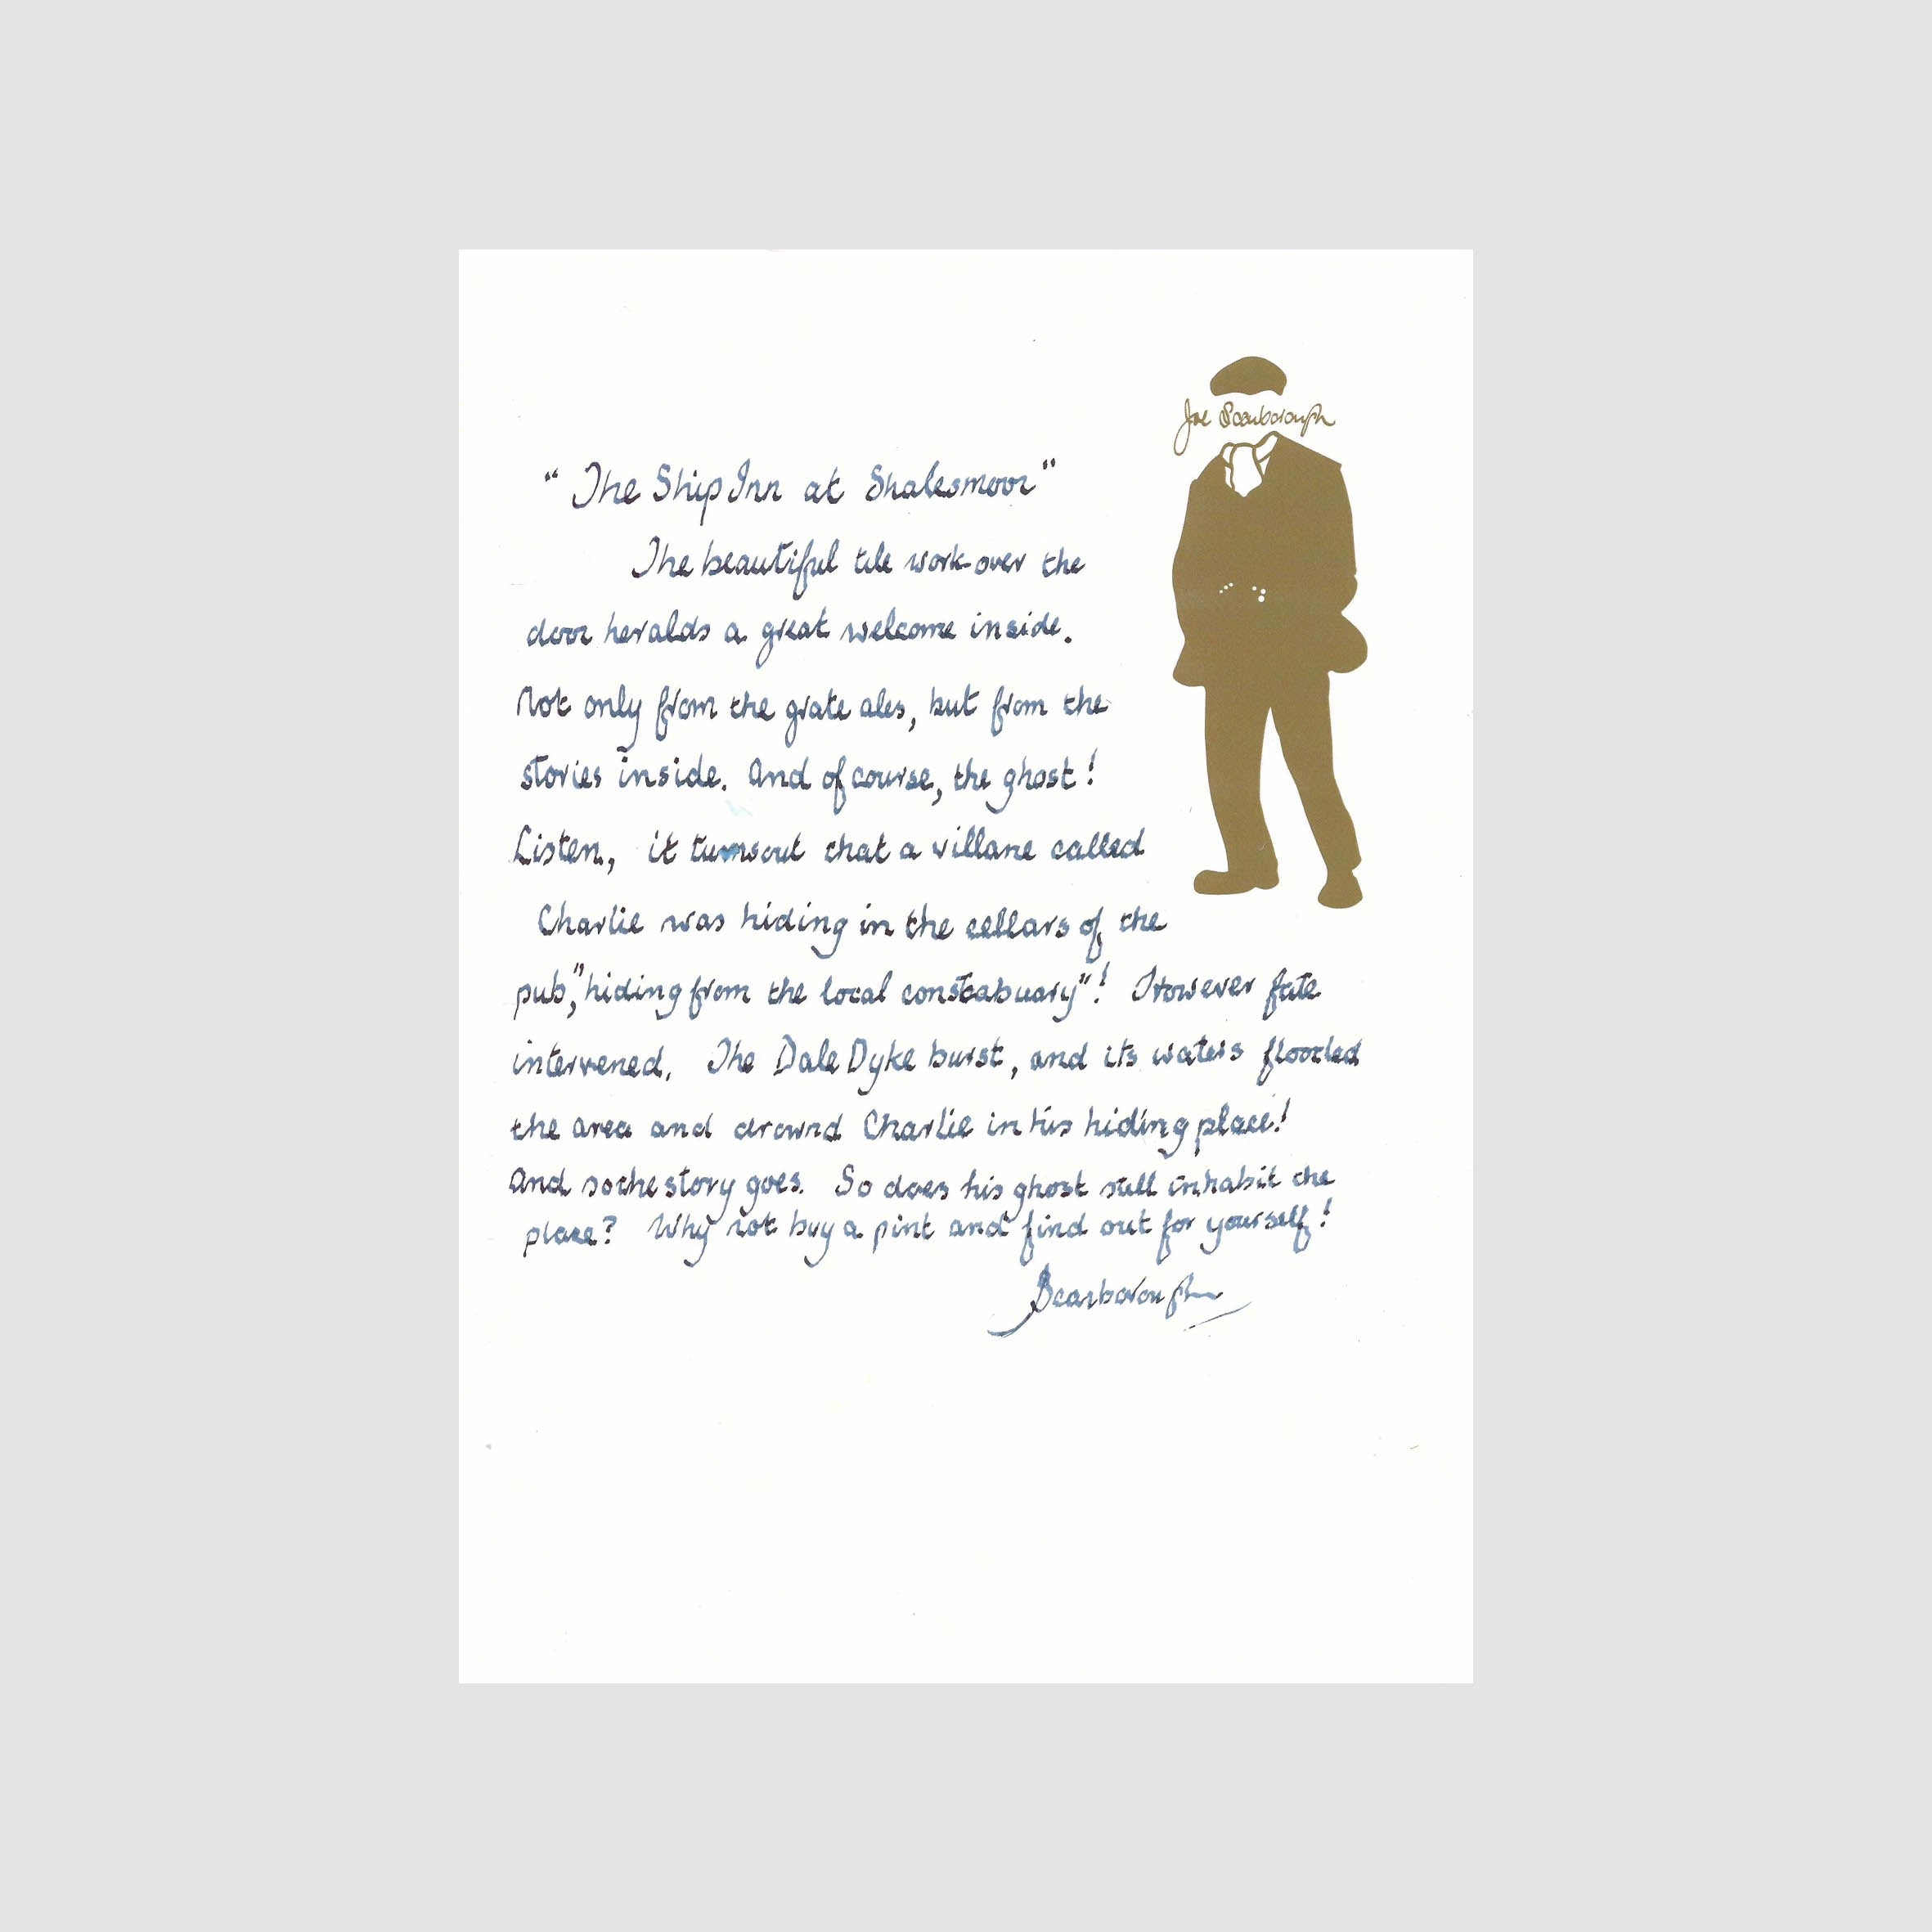 Joe Scarborough
"The Ship Inn at Shalesmoor"
The beautiful tile work over the
door heralds a great welcome inside.
Not only from the grate ales, but from the
stories inside. And of course, the ghost!
Listen, it turnsout that a villane called
Charlie was hiding in the cellars of the
pub, "hiding from the local constabuary"! However fate
intervened. The Dale Dyke burst, and its waters flooded
the area and drownd Charlie in his hiding place!
And so the story goes. So does his ghost still inhabit the
place? Why not buy a pint and find out for yourself!
Scarborough